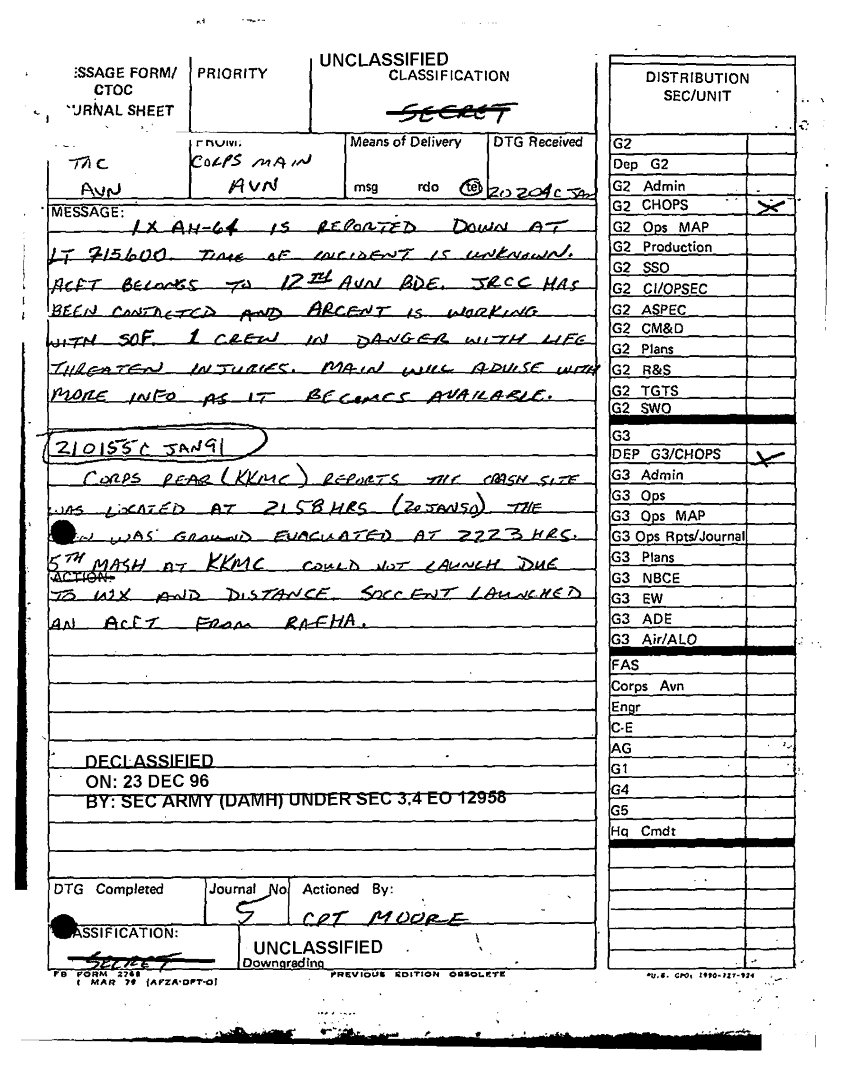 UNCLASSIFIED
ESSAGE FORM/
CTOC
URNAL SHEET
PRIORITY
CLASSIFICATION
SECRET
TAC
AVN
FROM:
CORPS MAIN
AVN
Means of Delivery
msg rdo tel
DTG Received
202040C JAN
MESSAGE:
1X AH-64 IS REPORTED DOWN AT
LT 715600. TIME OF INCIDENT IS UNKNOWN.
ACFT BELONGS TO 12TH AVN BDE. JRCC HAS
BEEN CONTACTED AND ARCENT IS WORKING
WITH SOF. 1 CREW IN DANGER WITH LIFE
THREATEN INJURIES. MAIN WILL ADVISE WITH
MORE INFO AS IT BECOMES AVAILABLE.
210155C JAN91
CORPS REAR (KKMC) REPORTS THE CRASH SITE
WAS LOCATED AT 2158 HRS (20JAN90) THE
WAS GROUND EVACUATED AT 2223 HRS.
5TH MASH AT KKMC COULD NOT LAUNCH DUE
ACTION:
TO WX AND DISTANCE. SOCCENT LAUNCHED
AN ACFT FROM RAFHA.
DECLASSIFIED
ON: 23 DEC 96
BY: SEC ARMY (DAMH) UNDER SEC 3.4 EO 12958
DTG Completed
Journal No
5
Actioned By:
CPT MOORE
ASSIFICATION:
SECRET
UNCLASSIFIED
Downgrading
FB FORM 2768
1 MAR 79 (AFZA-DPT-O)
PREVIOUS EDITION OBSOLETE
DISTRIBUTION
SEC/UNIT
G2
Dep G2
G2 Admin
G2 CHOPS X
G2 Ops MAP
G2 Production
G2 SSO
G2 CI/OPSEC
G2 ASPEC
G2 CM&D
G2 Plans
G2 R&S
G2 TGTS
G2 SWO
G3
DEP G3/CHOPS X
G3 Admin
G3 Ops
G3 Ops MAP
G3 Ops Rpts/Journal
G3 Plans
G3 NBCE
G3 EW
G3 ADE
G3 Air/ALO
FAS
Corps Avn
Engr
C-E
AG
G1
G4
G5
Hq Cmdt
*U.S. GPO: 1990-727-924